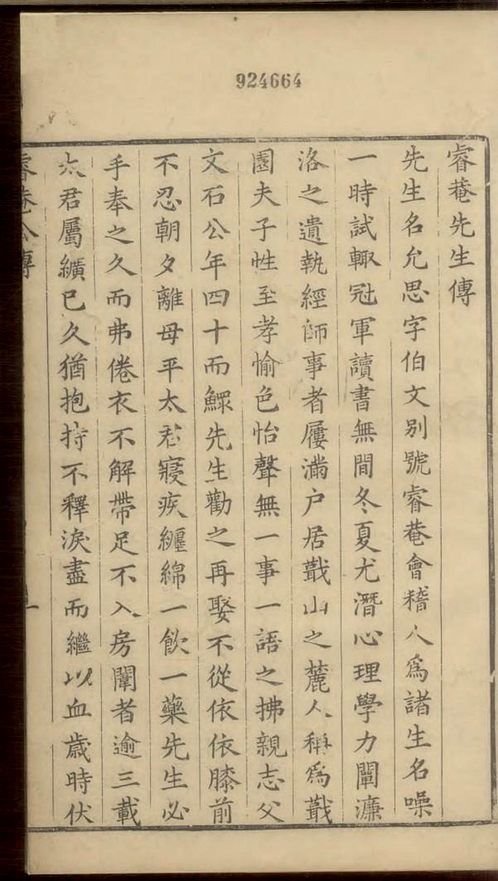 924664
睿菴先生傳
先生名允思字伯文別號睿菴會稽人爲諸生名噪
一時試輙冠軍讀書無間冬夏尤潛心理學力闡濂
洛之遺執經師事者屢滿户居蕺山之麓人稱爲蕺
園夫子性至孝愉色怡聲無一事一語之拂親志父
文石公年四十而鰥先生勸之再娶不從依依膝前
不忍朝夕離母平太君寢疾纏綿一飮一藥先生必
手奉之久而弗倦衣不解帶足不入房闈者逾三載
太君屬纊已久猶抱持不釋淚盡而繼以血歲時伏
睿菴公傳
一